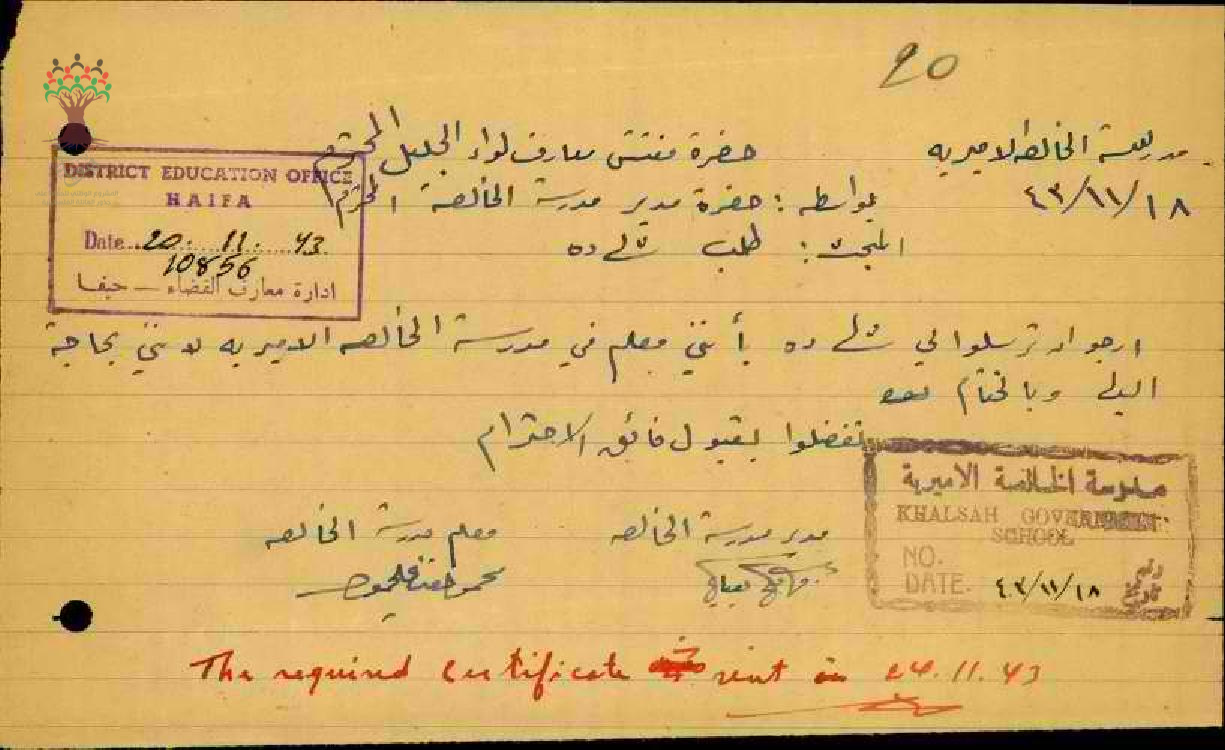 20
مدرسة الخالصه الاميريه
٤٣/١١/١٨
حضرة مفتش معارف لواء الجليل المحترم
بواسطه : حضرة مدير مدرسة الخالصة المحترم
المبحث : طلب شهاده
DISTRICT EDUCATION OFFICE
HAIFA
Date 20. 11. 43
10856
ادارة معارف القضاء — حيفا
ارجو ان ترسلوا لي شهاده بأنني معلم في مدرسة الخالصه الاميريه لانني بحاجة
اليها وبالختام
تفضلوا بقبول فائق الاحترام
مدير مدرسة الخالصه
معلم مدرسة الخالصه
مدرسة الخالصة الاميرية
KHALSAH GOVERNMENT
SCHOOL
NO. رقم
DATE. ٤٣/١١/١٨ تاريخ
The required certificate sent in 24.11.43